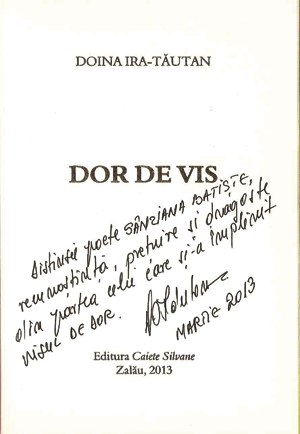 DOINA IRA-TĂUTAN
DOR DE VIS
Distinsei poete SÂNZIANA BATIȘTE,
recunoștință, prețuire și dragoste
din partea celui care și-a împlinit
VISUL DE DOR.
MARTIE 2013
Editura Caiete Silvane
Zalău, 2013